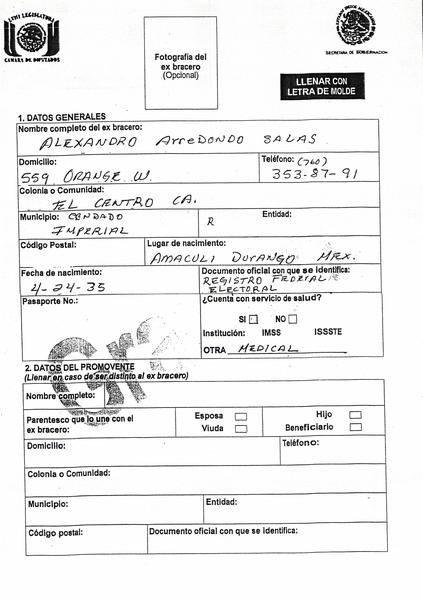 LVIII LEGISLATURA
CAMARA DE DIPUTADOS
Fotografía del
ex bracero
(Opcional)
ESTADOS UNIDOS MEXICANOS
SECRETARIA DE GOBERNACION
LLENAR CON
LETRA DE MOLDE
1. DATOS GENERALES
Nombre completo del ex bracero:
ALEXANDRO ArreDONDO SALAS
Domicilio:
559 ORANGE W.
Teléfono: (760)
353-87-91
Colonia o Comunidad:
EL CENTRO CA.
Municipio: CONDADO
IMPERIAL
R
Entidad:
Código Postal:
Lugar de nacimiento:
AMACULI DURANGO MEX.
Fecha de nacimiento:
4-24-35
Documento oficial con que se identifica:
REGISTRO FEDERAL
ELECTORAL
Pasaporte No.:
¿Cuenta con servicio de salud?
SI NO
Institución: IMSS ISSSTE
OTRA MEDICAL
2. DATOS DEL PROMOVENTE
(Llenar en caso de ser distinto al ex bracero)
Nombre completo:
Parentesco que lo une con el
ex bracero:
Esposa
Viuda
Hijo
Beneficiario
Domicilio:
Teléfono:
Colonia o Comunidad:
Municipio:
Entidad:
Código postal:
Documento oficial con que se identifica: